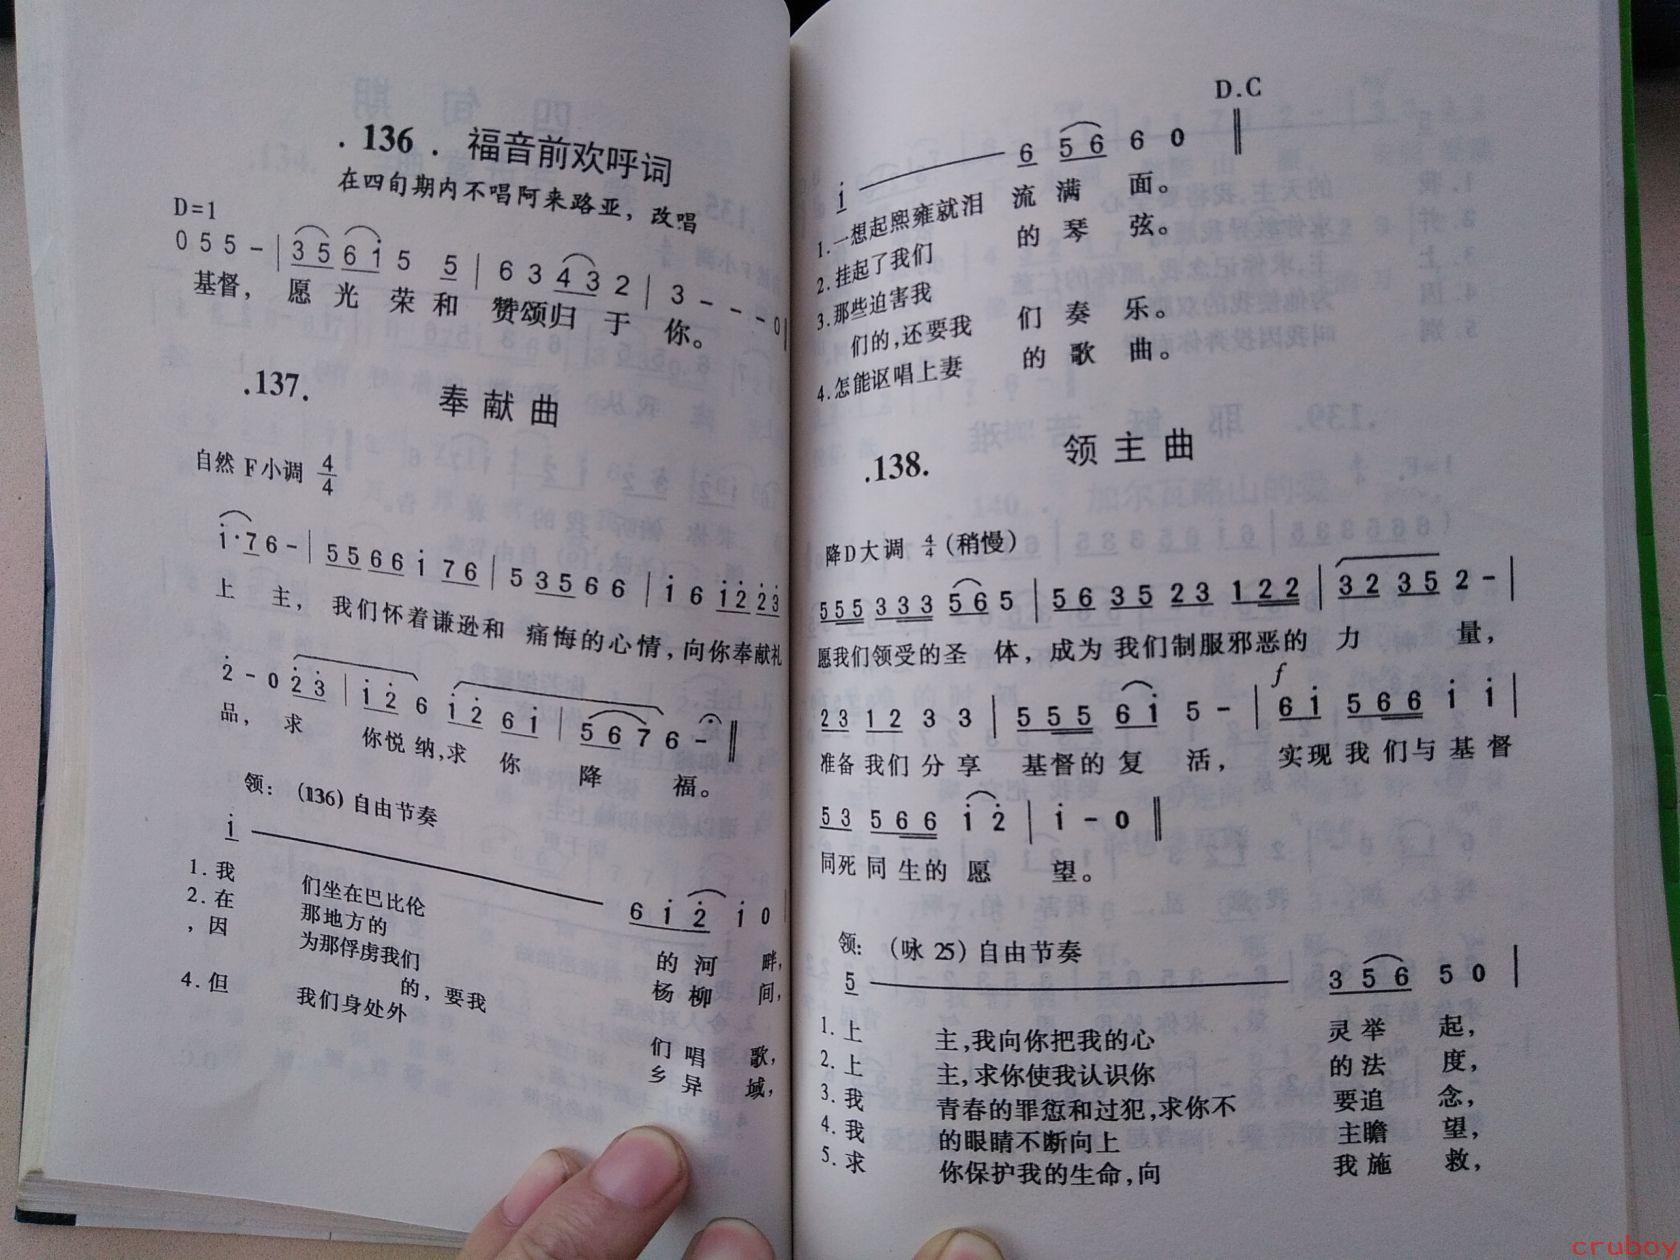 .136. 福音前欢呼词
在四旬期内不唱阿来路亚，改唱
D=1
0 5 5 - | 3 5 6 i 5 5 | 6 3 4 3 2 | 3 - - - 0 |
基督，愿光荣和赞颂归于你。
.137. 奉献曲
自然F小调 4/4
i·7 6 - | 5 5 6 6 i 7 6 | 5 3 5 6 6 | i 6 i 2 2 3
上主，我们怀着谦逊和 痛悔的心情，向你奉献礼
2 - 0 2 3 | i 2 6 i 2 6 i | 5 6 7 6 - ‖
品，求你悦纳，求你降福。
领：（136）自由节奏
i ——— 6 i 2 i 0 |
1.我们坐在巴比伦的河畔，
2.在那地方的杨柳间，
，因为那俘虏我们的，要我们唱歌，
4.但我们身处外乡异域，
D.C
i ——— 6 5 6 6 0 ‖
1.一想起熙雍就泪流满面。
2.挂起了我们的琴弦。
3.那些迫害我
们的，还要我们奏乐。
4.怎能讴唱上妻的歌曲。
.138. 领主曲
降D大调 4/4（稍慢）
5 5 5 3 3 3 5 6 5 | 5 6 3 5 2 3 1 2 2 | 3 2 3 5 2 - |
愿我们领受的圣体，成为我们制服邪恶的力量，
f
2 3 1 2 3 3 | 5 5 5 6 i 5 - | 6 i 5 6 6 i i |
准备我们分享 基督的复活，实现我们与基督
5 3 5 6 6 i 2 | i - 0 ‖
同死同生的愿望。
领：（咏25）自由节奏
5 ——— 3 5 6 5 0 |
1.上主，我向你把我的心灵举起，
2.上主，求你使我认识你的法度，
3.我青春的罪愆和过犯，求你不要追念，
4.我的眼睛不断向上主瞻望，
5.求你保护我的生命，向我施救，
cruboy